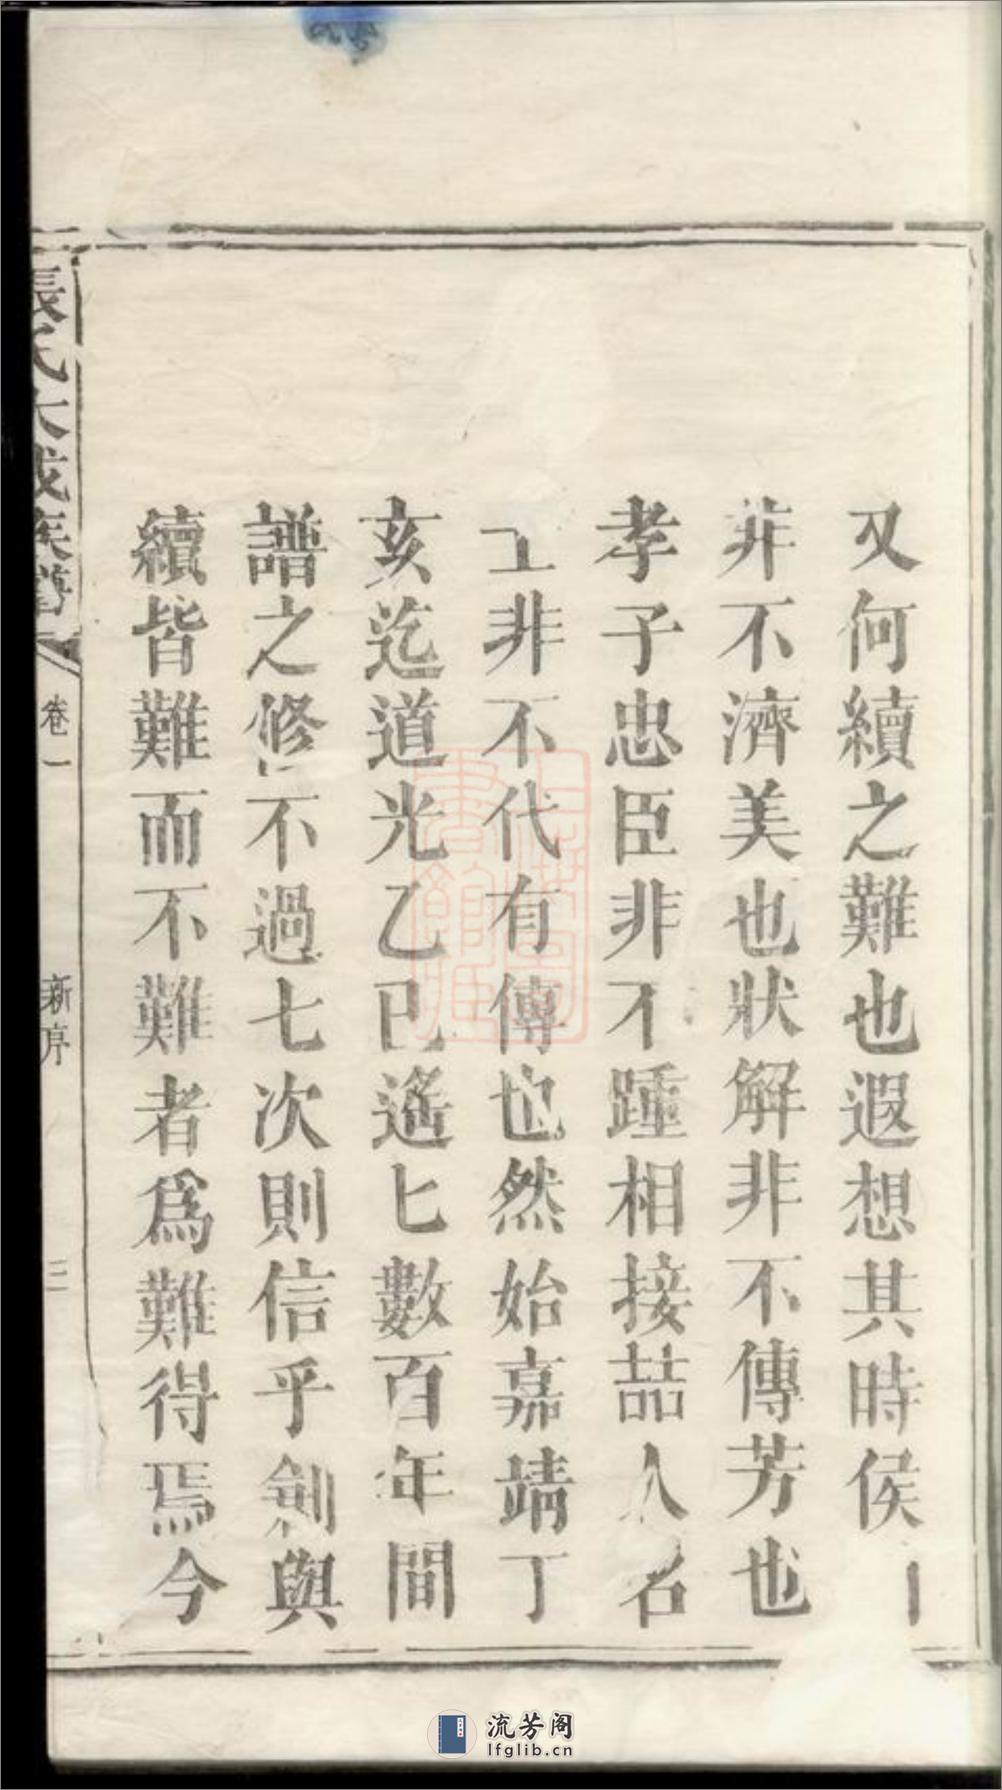 又何續之難也遐想其時侯
非不濟美也狀解非不傳芳也
孝子忠臣非不踵相接喆人名
工非不代有傳也然始嘉靖丁
亥迄道光乙巳遙七數百年間
譜之修不過七次則信乎創與
續皆難而不難者為難得焉今
張氏大成族譜
卷一
新序
二
流芳阁
lfglib.cn